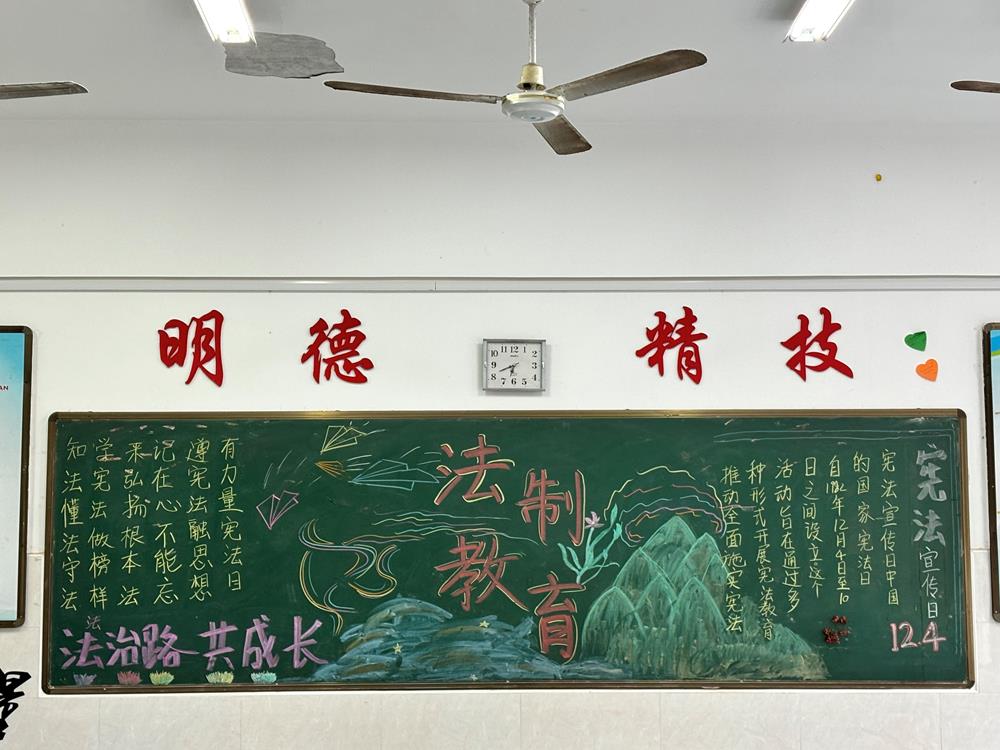 明 德 精 技
有力量宪法日
遵宪法融思想
记在心不能忘
来弘扬根本法
学宪法做榜样
知法懂法守法
法
法治路 共成长
法制
教育
宪法宣传日
12.4
宪法宣传日中国
的国家宪法日
年12月4日至10
日之间设立这个
活动旨在通过多
种形式开展宪法教育
推动全面施实宪法
11 12 1
10 2
9 3
8 4
7 6 5
AN